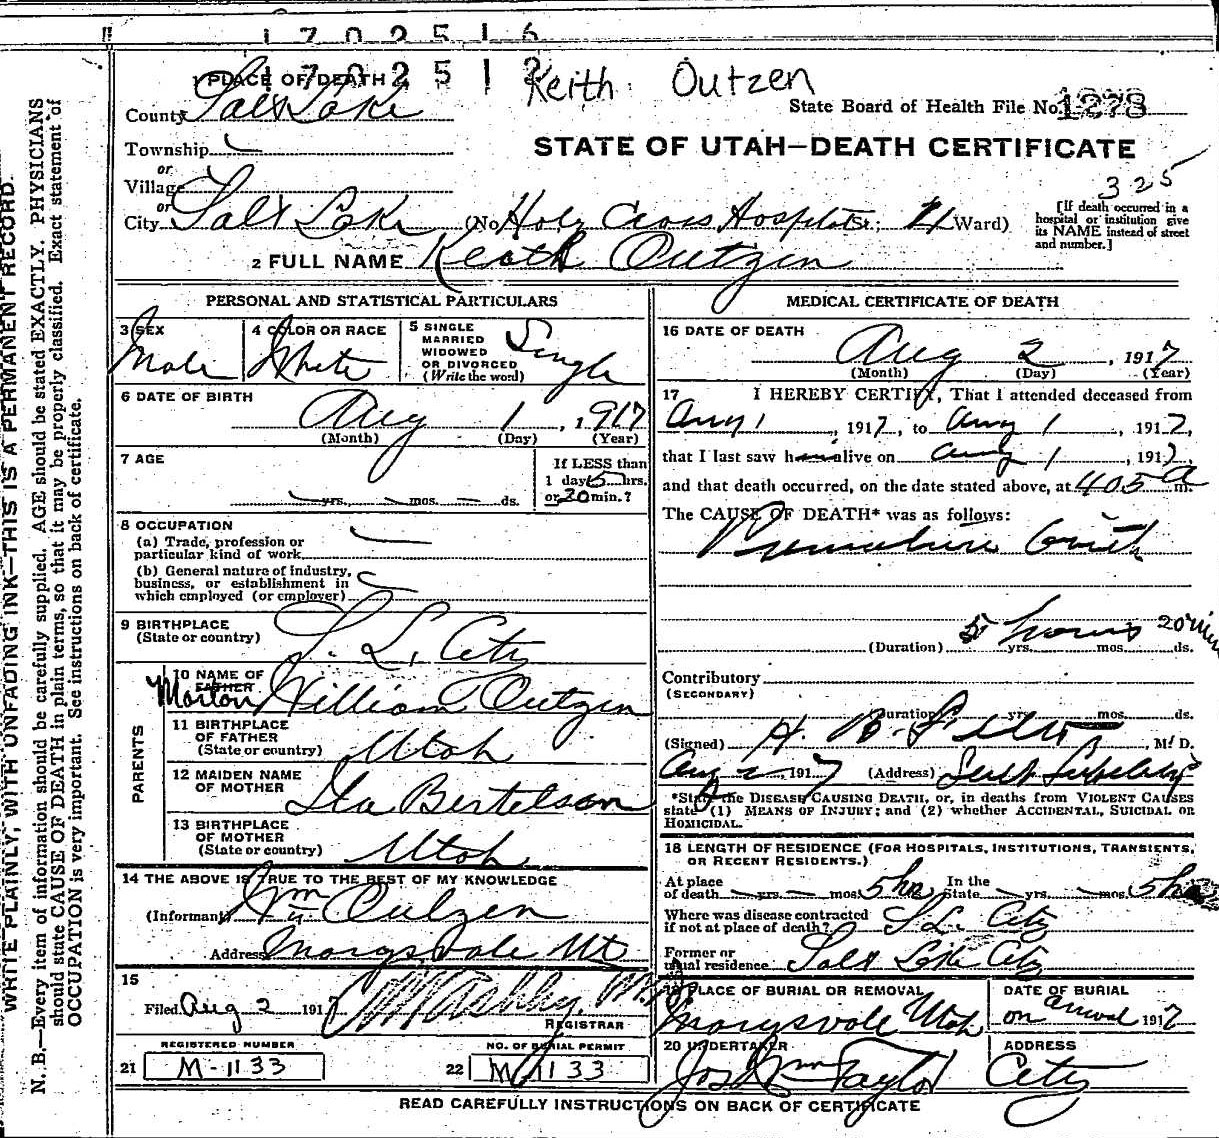 1702516
1 PLACE OF DEATH 1702512 Keith Outzen
County Salt Lake State Board of Health File No. 1278
STATE OF UTAH—DEATH CERTIFICATE
Township
or
Village
or
325
City Salt Lake (No. Holy Cross Hospital St.; 4 Ward)
[If death occurred in a hospital or institution give its NAME instead of street and number.]
2 FULL NAME Keath Outzen
PERSONAL AND STATISTICAL PARTICULARS
3 SEX Male
4 COLOR OR RACE White
5 SINGLE MARRIED WIDOWED OR DIVORCED (Write the word) Single
6 DATE OF BIRTH Aug 1, 1917
(Month) (Day) (Year)
7 AGE yrs. mos. ds.
If LESS than
1 day 5 hrs.
or 20 min.?
8 OCCUPATION
(a) Trade, profession or
particular kind of work
(b) General nature of industry,
business, or establishment in
which employed (or employer)
9 BIRTHPLACE
(State or country) S. L. City
PARENTS
10 NAME OF FATHER Morton William Outzen
11 BIRTHPLACE
OF FATHER
(State or country) Utah
12 MAIDEN NAME
OF MOTHER Ila Bertelson
13 BIRTHPLACE
OF MOTHER
(State or country) Utah
14 THE ABOVE IS TRUE TO THE BEST OF MY KNOWLEDGE
(Informant) Wm Outzen
Address Marysvale Ut
15
Filed Aug 2 1917 Ashby, M.D.
REGISTRAR
REGISTERED NUMBER
21 M-1133
NO. OF BURIAL PERMIT
22 M 1133
MEDICAL CERTIFICATE OF DEATH
16 DATE OF DEATH
Aug 2, 1917
(Month) (Day) (Year)
17 I HEREBY CERTIFY, That I attended deceased from
Aug 1, 1917, to Aug 1, 1917,
that I last saw h alive on Aug 1, 1917,
and that death occurred, on the date stated above, at 405 a m.
The CAUSE OF DEATH* was as follows:
Premature birth
5 hours 20 min
(Duration) yrs. mos. ds.
Contributory
(SECONDARY)
(Duration) yrs. mos. ds.
(Signed) H. B. , M. D.
Aug 2, 1917 (Address) Salt Lake City
*State the DISEASE CAUSING DEATH, or, in deaths from VIOLENT CAUSES
state (1) MEANS OF INJURY; and (2) whether ACCIDENTAL, SUICIDAL OR
HOMICIDAL.
18 LENGTH OF RESIDENCE (FOR HOSPITALS, INSTITUTIONS, TRANSIENTS,
OR RECENT RESIDENTS.)
At place of death yrs. mos. 5 hrs In the State yrs. mos. 5 hrs
Where was disease contracted
if not at place of death? S. L. City
Former or
usual residence Salt Lake City
19 PLACE OF BURIAL OR REMOVAL
Marysvale Utah
DATE OF BURIAL
on arrival 1917
20 UNDERTAKER
Jos Wm Taylor
ADDRESS
City
READ CAREFULLY INSTRUCTIONS ON BACK OF CERTIFICATE
WRITE PLAINLY, WITH UNFADING INK—THIS IS A PERMANENT RECORD.
N. B.—Every item of information should be carefully supplied. AGE should be stated EXACTLY. PHYSICIANS
should state CAUSE OF DEATH in plain terms, so that it may be properly classified. Exact statement of
OCCUPATION is very important. See instructions on back of certificate.